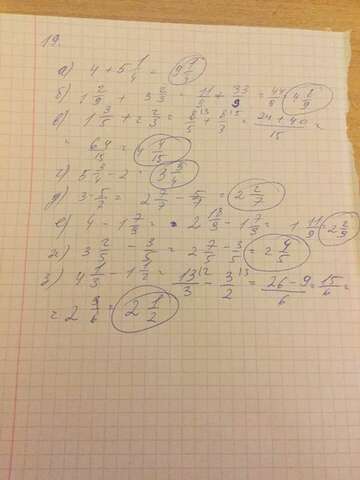 19.
а) 4 + 5 1/4 = 9 1/3
б) 1 2/9 + 3 2/3 = 11/9 + 33/9 = 44/9 = 4 8/9
в) 1 3/5 + 2 2/3 = 8/5 + 8/3 = (24 + 40)/15 =
= 64/15 = 4 4/15
г) 5 3/4 - 2 = 3 3/4
д) 3 - 5/7 = 2 7/7 - 5/7 = 2 2/7
е) 4 - 1 7/9 = 2 18/9 - 1 7/9 = 1 11/9 = 2 2/9
ж) 3 2/5 - 3/5 = 2 7/5 - 3/5 = 2 4/5
з) 4 1/3 - 1 1/2 = 13/3 - 3/2 = (26 - 9)/6 = 15/6 =
= 2 3/6 = 2 1/2